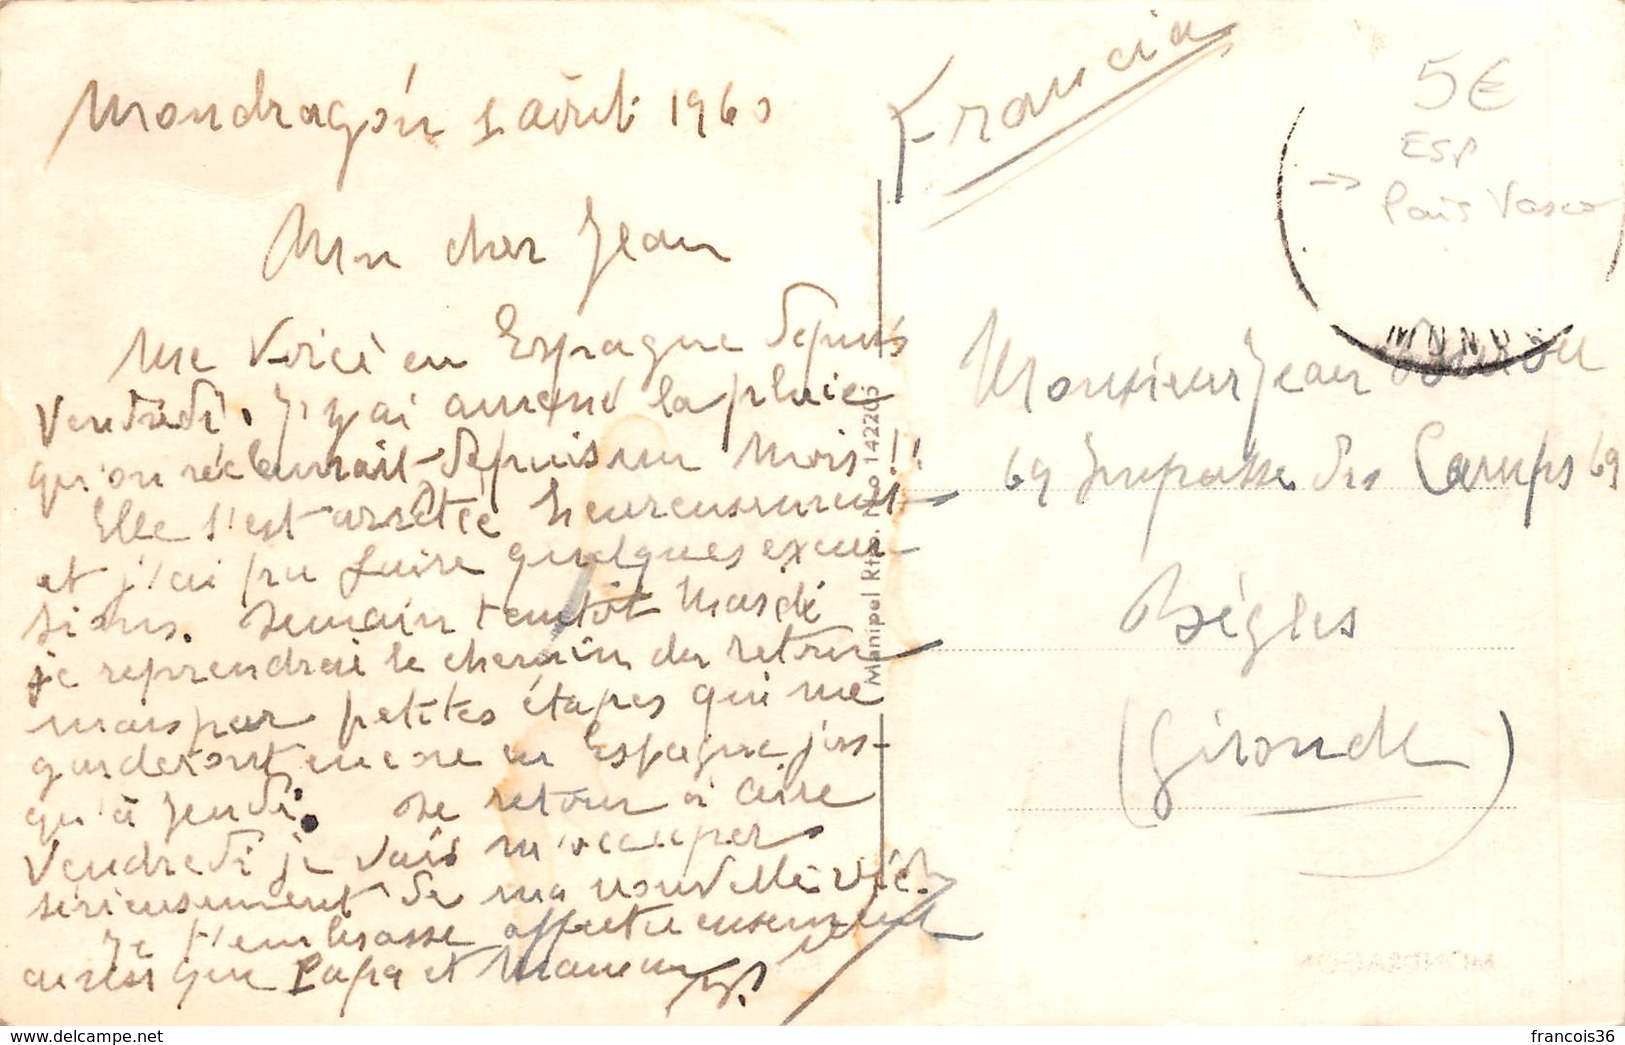 Mondragón 1 août 1960
Mon cher Jean
Me voici en Espagne depuis
Vendredi. J'y ai amené la pluie
qu'on réclamait depuis un mois!!
Elle s'est arrêtée heureusement
et j'ai pu faire quelques excur-
sions. Demain tantôt Mardi
je reprendrai le chemin du retour
mais par petites étapes qui me
garderont encore en Espagne jus-
qu'à Jeudi. De retour à Aire
Vendredi je vais m'occuper
sérieusement de ma nouvelle vie.
Je t'embrasse affectueusement
ainsi que Papa et Maman
Manipel Rtro. No 142205
Francia
5€
ESP
→ Pais Vasco
Monsieur Jean
69 Impasse des Camps 69
Bègles
(Gironde)
MONDRAGON
francois36
www.delcampe.net